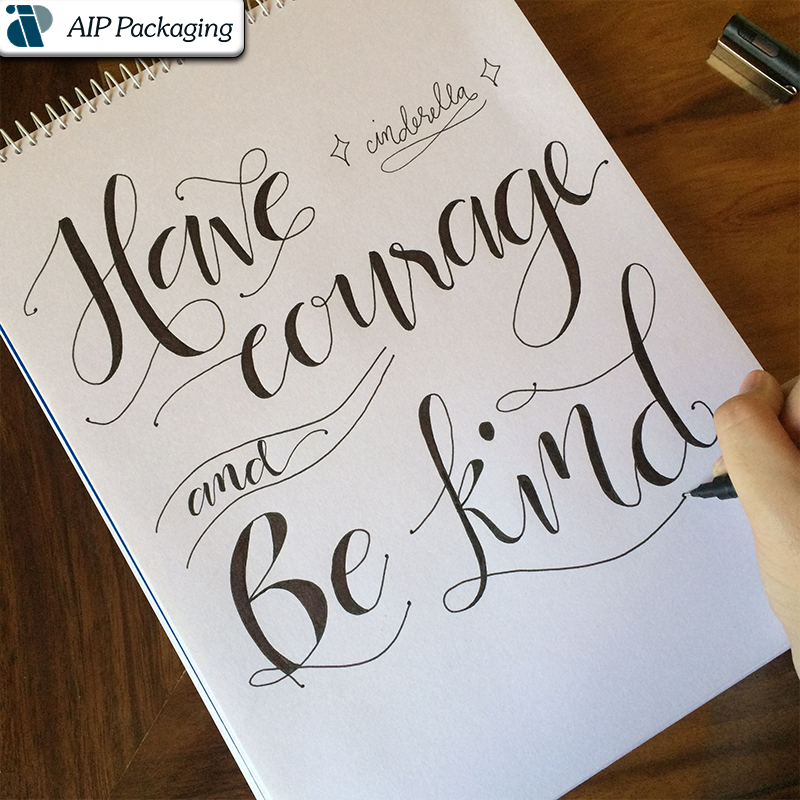 AIP Packaging
cinderella
Have
courage
and
Be kind